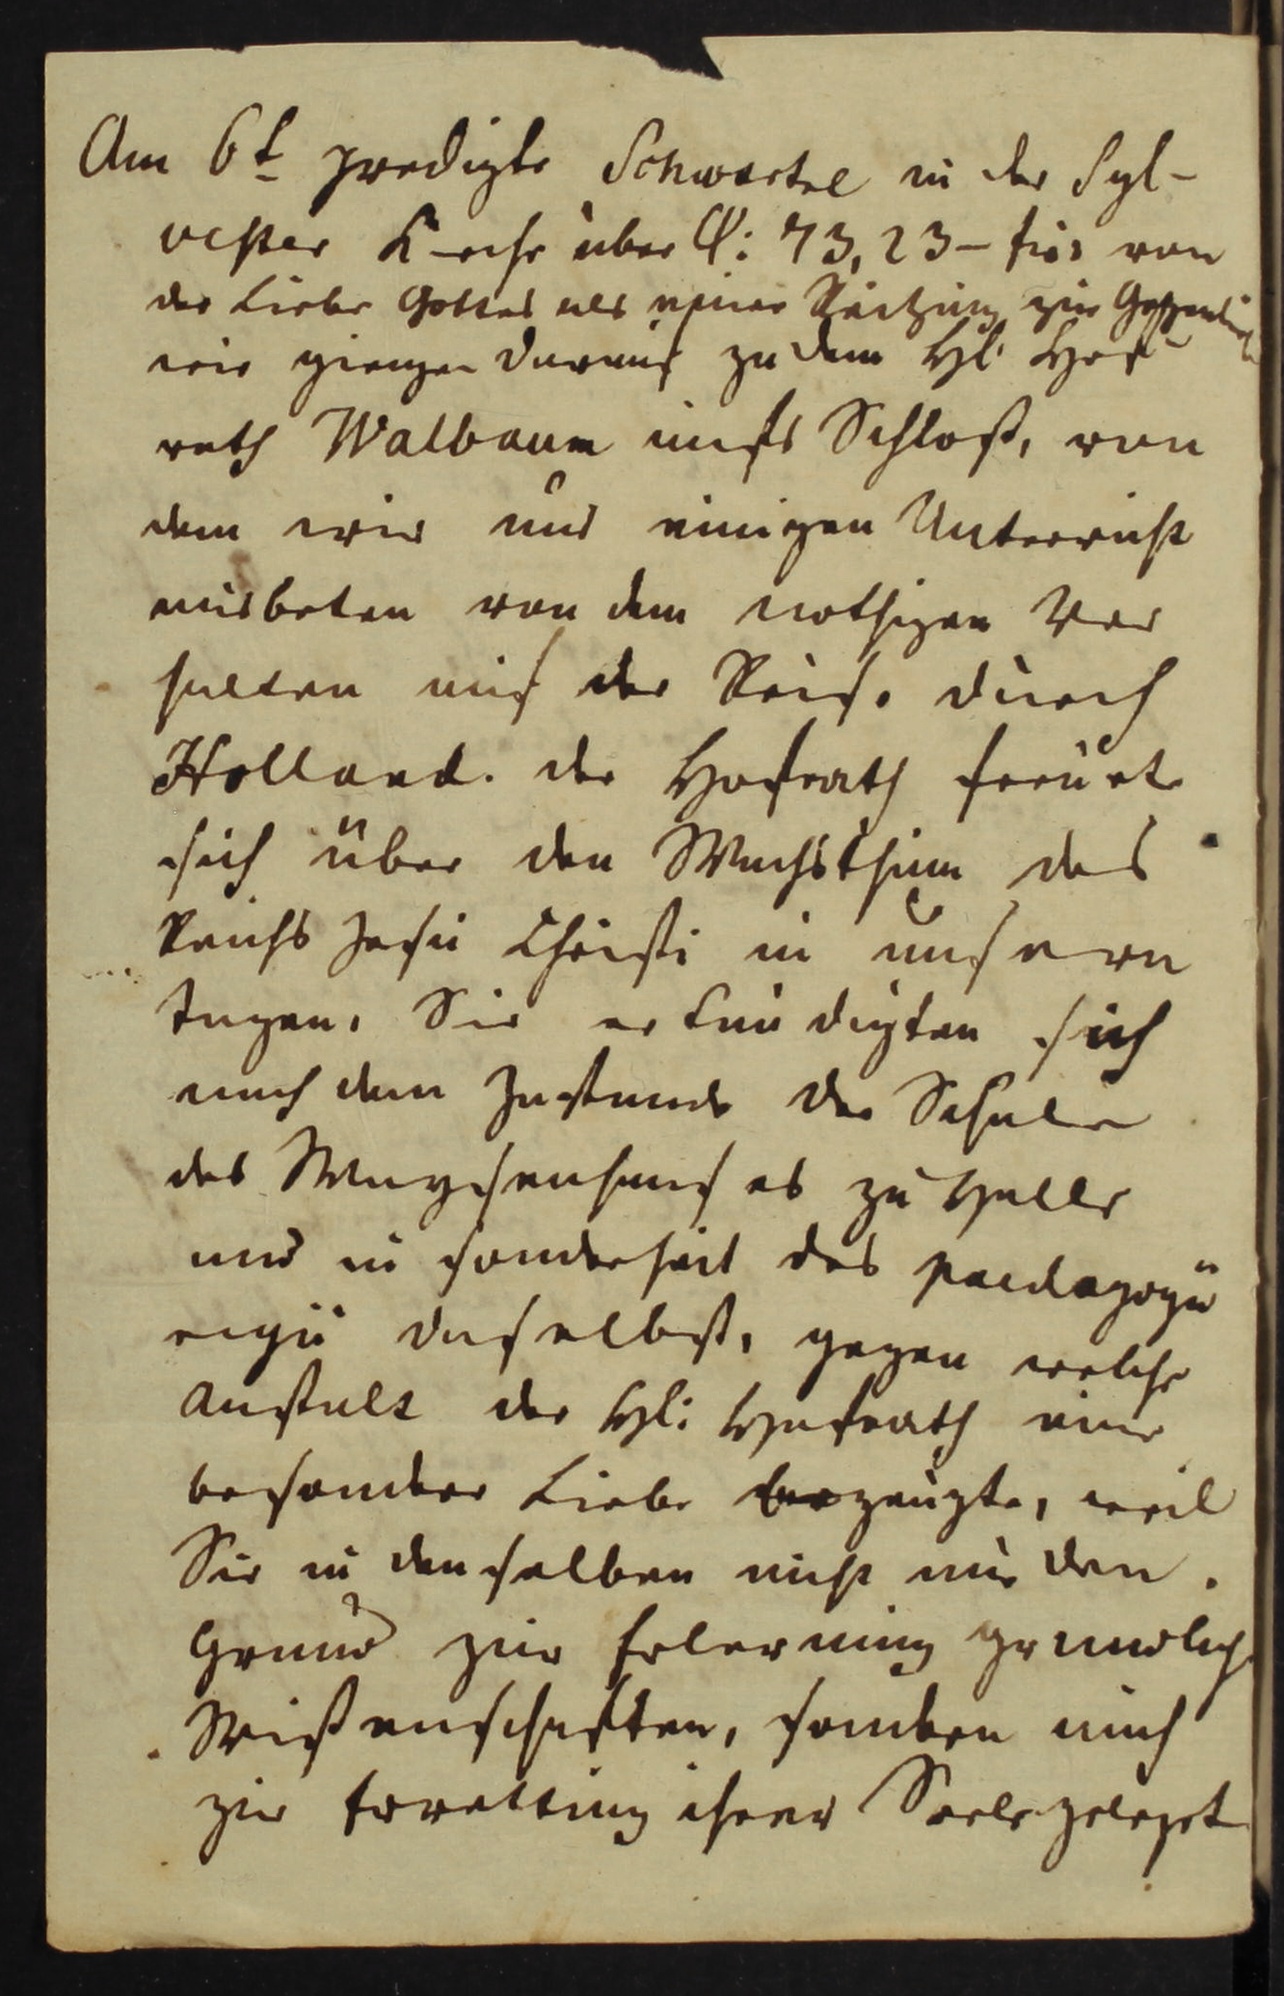 Am 6t predigte Schwartze in der Syl-
vester Kirche über Ps: 73, 23 - fin: von
der Liebe Gottes als einer Reitzung zur
wir giengen darauf zu dem HE. Hof-
rath Walbaum aufs Schloß, von
dem wir uns einigen Unterricht
ausbeten von dem nothigen Ver
halten auf der Reise durch
Holland. der Hofrath freuete
sich über den Wachsthum des
Reichs Jesu Christi in unsern
Tagen. Sie erkundigten sich
nach dem Zustande der Schulen
des Waysenhauses zu Halle
und in sonderheit des paedagogii
regii daselbst, gegen welche
Anstalt der HE: Hofrath eine
besondere Liebe bezeugte, weil
Sie in denselben nicht nur den
Grund zur Erlernung grundlicher
Wißenschafften, sondern auch
zur Errettung ihrer Seele geleget